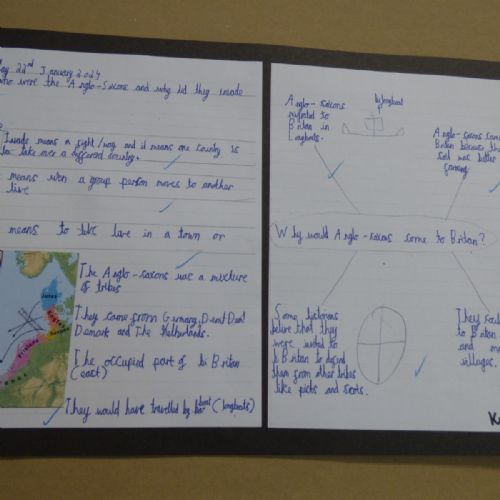 ay 22nd January 2024
who were the Anglo-Saxons and why did they invade
Invade means a fight/war and it means one country is
to take over a different country.
means wen a group person moves to another
live
means to like live in a town or
The Anglo-saxons was a mixture
of tribes
They came from Germany, Denmark
Demark and The Netherlands.
The occupied part of Britan
(east)
They would have travelled by boat (longboats)
Jutes
Angles
Saxons
Frisians
Anglo-saxons
migrated to
Britan in
Longboats.
by longboat
Anglo-saxons came
Britan because the
soil was better
farming
Why would Anglo-saxons come to Britan?
Some historians
belive that they
were invited to
Britan to defend
them from other tribes
like picts and scots.
They
to Britan
and
villeges.
K